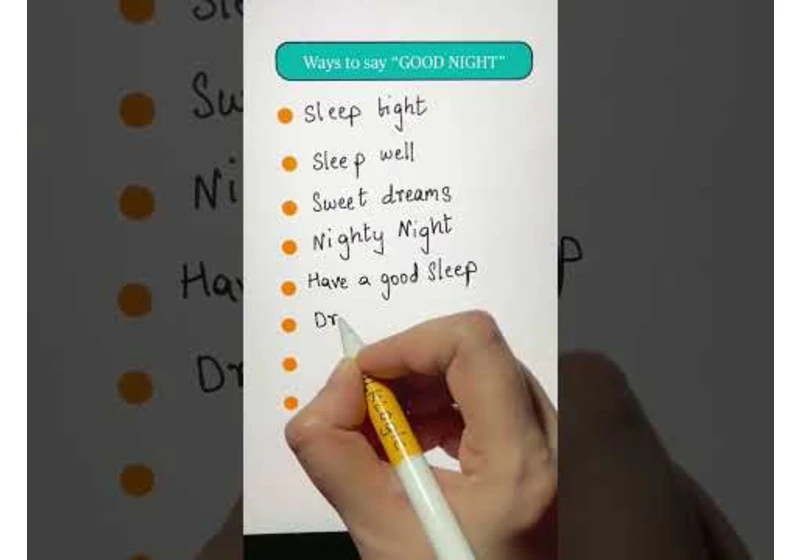 Ways to say “GOOD NIGHT”
Sleep tight
Sleep well
Sweet dreams
Nighty Night
Have a good Sleep
Dr